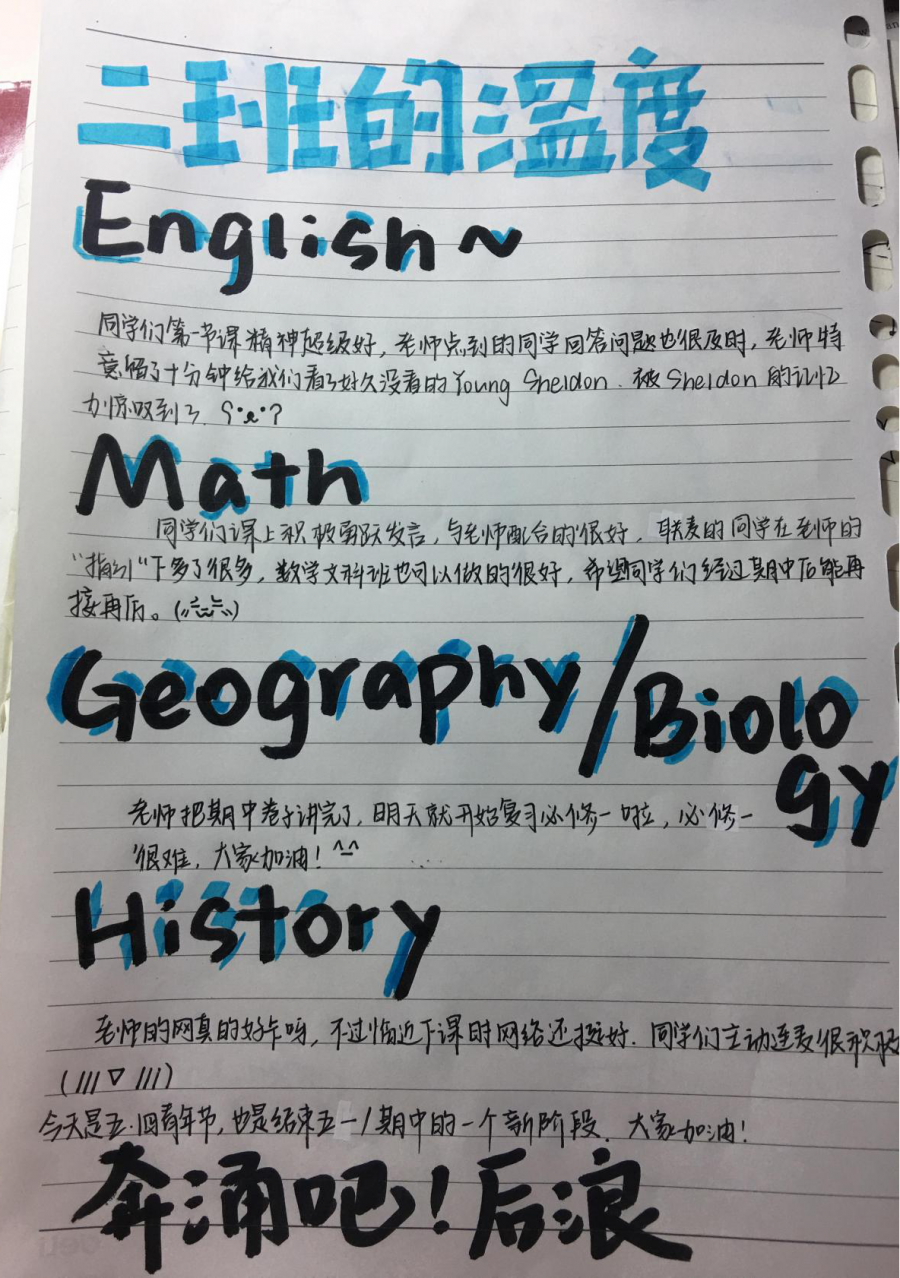 二班的温度
English~
同学们第一节课精神超级好，老师点到的同学回答问题也很及时，老师特
意留了十分钟给我们看了好久没看的Young Sheldon．被Sheldon的记忆
力惊叹到了．
Math
同学们课上积极踊跃发言，与老师配合的很好，联麦的同学在老师的
“指引”下多了很多，数学文科班也可以做的很好，希望同学们经过期中后能再
接再厉。
Geography/Biolo
gy
老师把期中卷子讲完了，明天就开始复习必修一啦，必修一
很难，大家加油！^-^
History
老师的网真的好卡呀，不过临近下课时网络还挺好．同学们主动连麦很积极
(///▽///)
今天是五·四青年节，也是结束五一/期中的一个新阶段．大家加油！
奔涌吧！后浪
deli